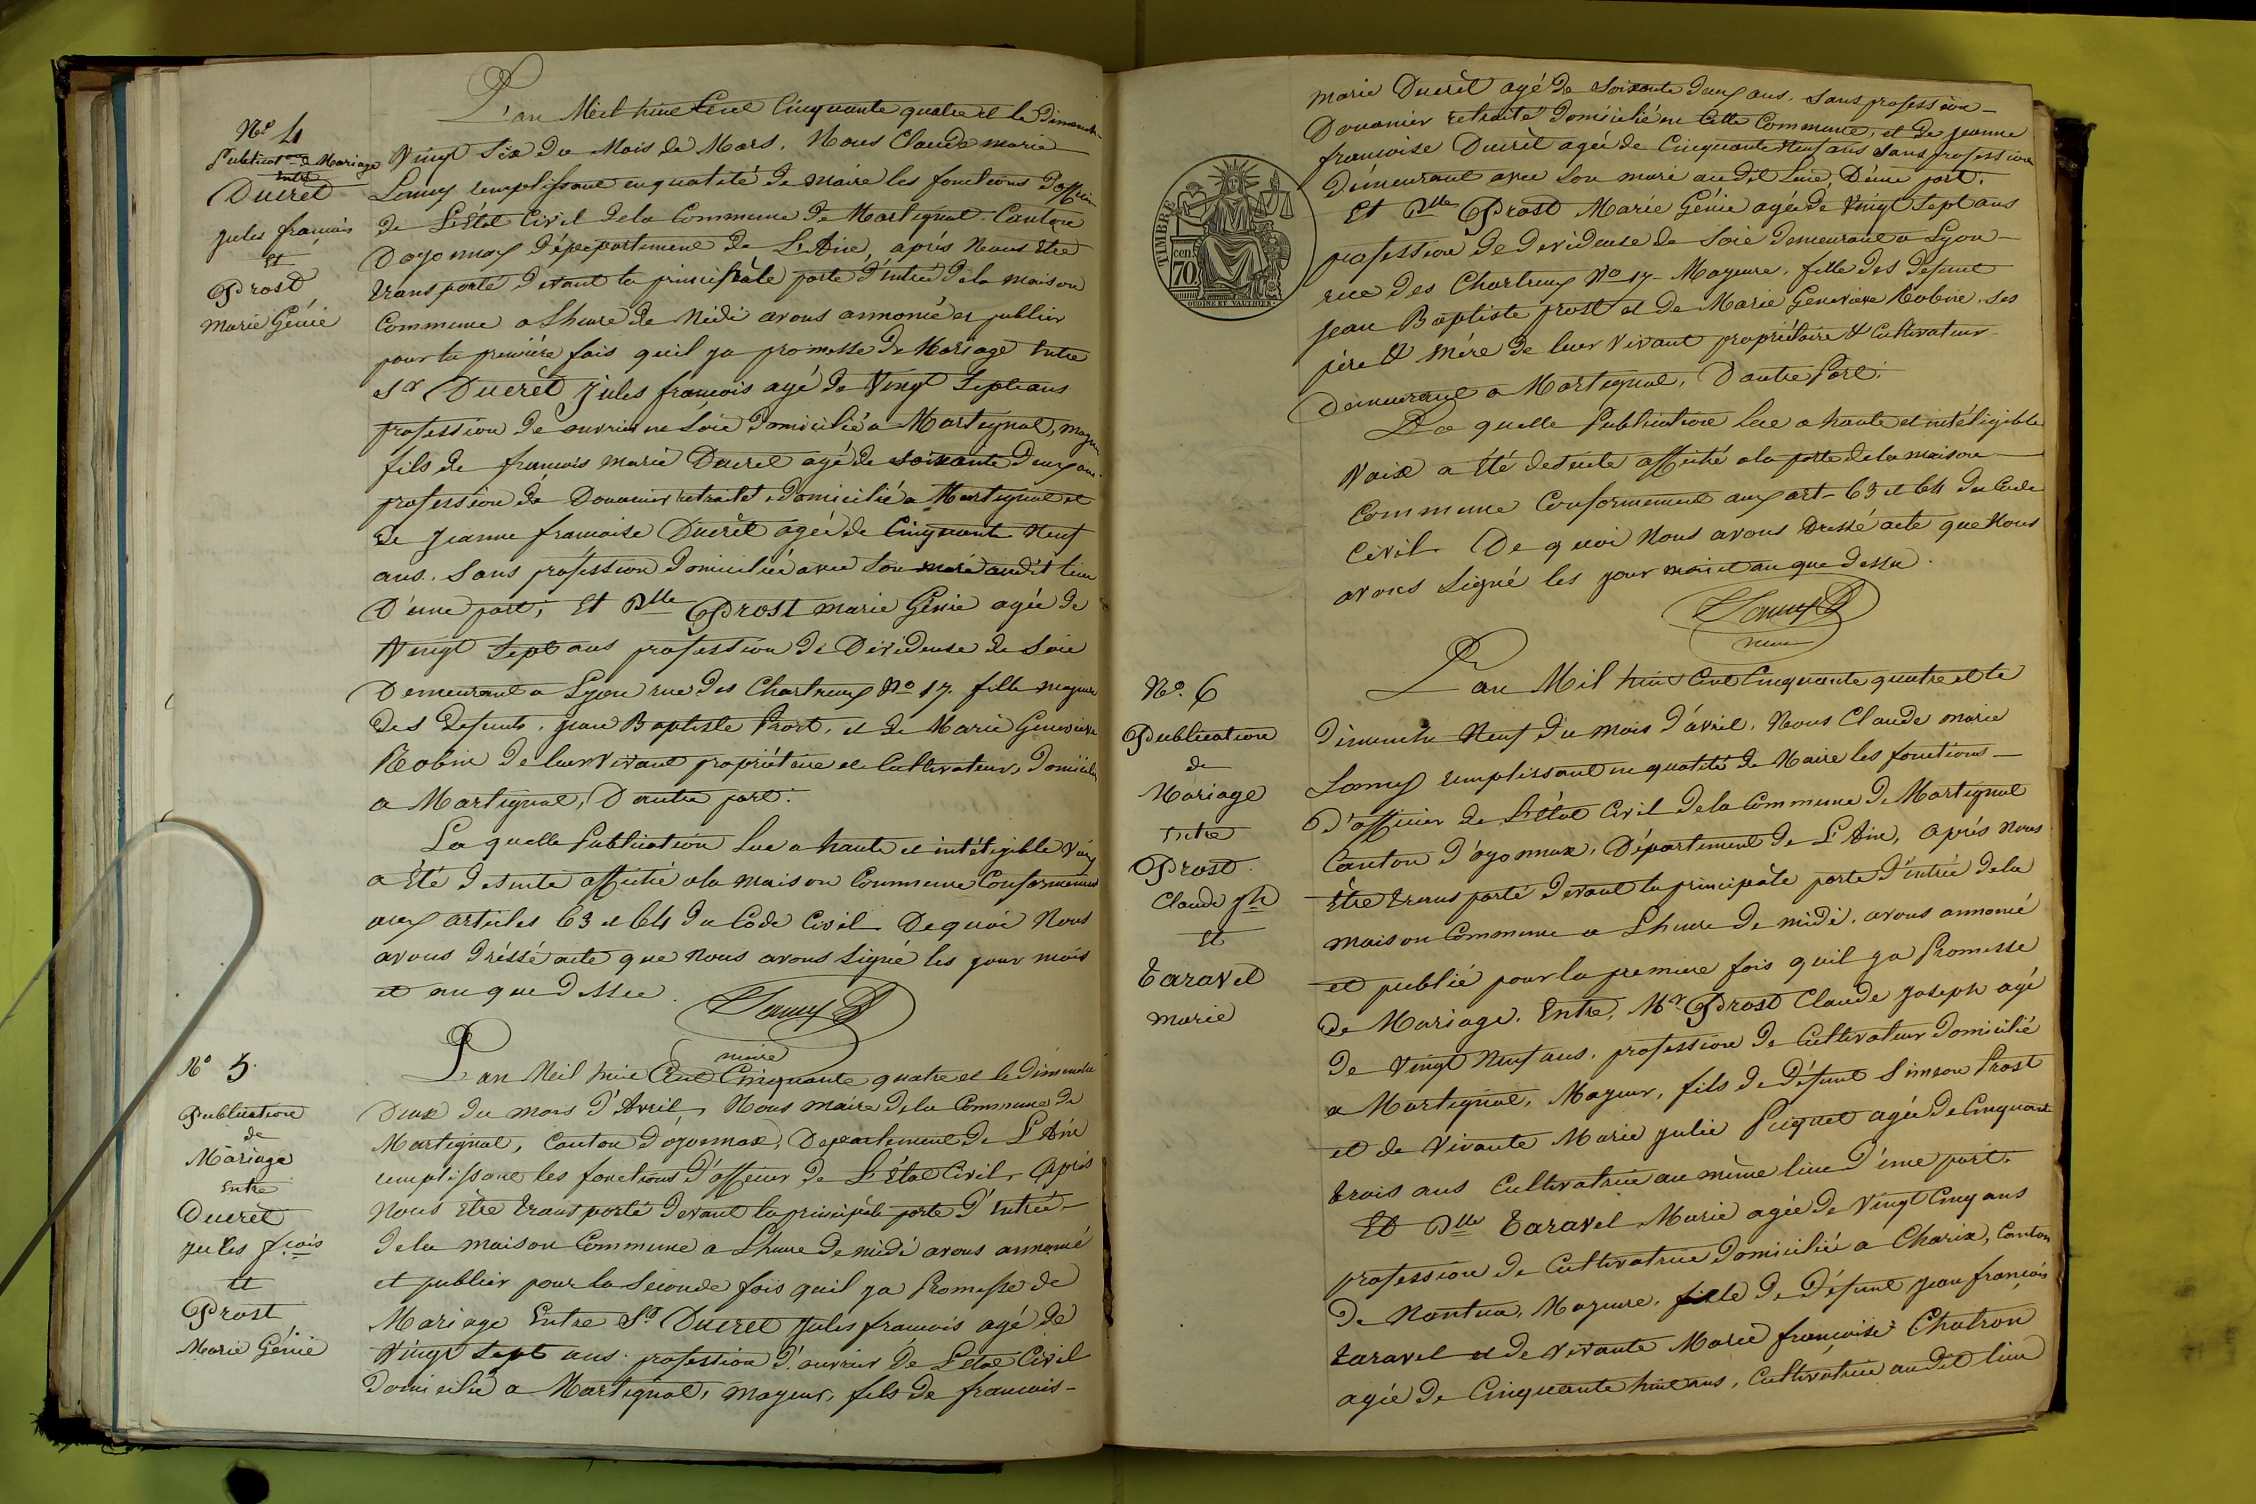 N.º 4
Publicat.on de Mariage
Entre
Ducrèt
jules françois
Et
Prost
Marie Génie
L'an Meil huit Cent Cinquante quatre et le Dimanche
Vingt Six du Mois de Mars. Nous Claude marie
Lamy remplissant en qualité de maire les fonctions d'officier
de L'État Civil dela Commune de Martignat. Canton
Doyonnax département de L'Ain, après Nous Etre
transporté devant la principâle porte d'éntreé dela maison
Commune a Lheure de Midi avons annoncé et publier
pour la première fois quil ya promesse de Mariage Entre
Sr Ducrèt Jules françois agé de Vingt Sept ans
profession de ouvrier en Soie domicilié a Martignat, mageur
fils de francois marie Ducret agé de soixante deux ans.
profession de Douanier retraité domicilié a Martignat et
de Jeanne francoise Ducrèt agée de Cinquante Neuf
ans. Sans profession domiciliée avec Son mari audit lieu
D'une part, Et Dlle Prost marie Génie agée de
Vingt Sept ans profession de Dévideuse de Soie
Demeurant a Lyon rue des Chartreux No 17. fille mageure
des defunts. jean Baptiste Prost. et de Marie Genevieve
Robin de leur Vivant propriétaire et Cultivateurs, domiciliés
a Martignat, D'autre part.
La quelle Publication Lue a haute et intéligible Voix
a Été desuite affiché ala maison Commune Conformement
aux articles 63 et 64 du Côde Civil. De quoi Nous
avons dréssé acte que Nous avons Signé les jour mois
et an que dessus.
Lamy
maire
N.º 5.
Publication
de
Mariage
Entre
Ducrèt
jules fçois
Et
Prost
Marie Génie
L'an Meil huit Cent Cinquante quatre et le dimanche
Deux du mois d'Avril, Nous maire dela Commune de
Martignat, Canton d'oyonnax, Departement de L'Ain
remplissant les fonctions d'officier de L'État Civil, Après
Nous Etre transporté devant la principâle porte d'Entreé
dela maison Commune a Lheure de midi avons annoncé
et publier pour la Seconde fois quil ya Promesse de
Mariage Entre Sr Ducret jules francois agé de
Vingt Sept ans. profession d'ouvrier de L'etat Civil
domicilié a Martignat, mageur, fils de francois-
TIMBRE
cen.
70
marie Ducrèt agé de Soixante deux ans. Sans profession
Douanier retraité domicilié en Cette Commune, et de jeanne
francoise Ducrèt agée de Cinquante Neuf ans Sans profession
démeurant avec Son mari au dit Lieu, D'une part.
Et Dlle Prost Marie Génie agée de Vingt Sept ans
profession de devideuse de Soie demeurant a Lyon
rue des Chartreux No 17. Mageure. fille des defunt
jean Baptiste prost et de Marie Genevieve Robin. Ses
père & mère de leur Vivant propriétaire & Cultivateur
Demeurant a Martignat, D'autre Part.
La quelle Publication lue a haute et intéligible
Voix a Été desuite affiché ala porte dela maison
Commune Conformement aux art. 63 et 64 du Code
Civil. De quoi Nous avons dressé acte que Nous
avons Signé les jour mois et an que dessus.
Lamy
maire
N.º 6
Publication
de
Mariage
Entre
Prost
Claude jh
Et
Taravel
marie
L'an Mil huit Cent Cinquante quatre et le
dimanche Neuf du mois d'avril. Nous Claude marie
Lamy remplissant en qualité de Maire les fonctions
D'officier de L'état Civil dela Commune de Martignat
Canton d'oyonnax, Département de L'Ain, Après nous
Être transporté devant la principâle porte d'entrée dela
maison Commune a Lheure de midi. avons annoncé
et publié pour la première fois quil ya Promesse
de Mariage. Entre, Mr Prost Claude joseph agé
de Vingt Neuf ans. profession de Cultivateur domicilié
a Martignat, Mageur, fils de défunt Simeon Prost
et de Vivante Marie julie Piquet agée de Cinquante
trois ans Cultivatrice au même lieu d'une part.
Et Dlle Taravel Marie agée de Vingt Cinq ans
profession de Cultivatrice domicilié a Charix, Canton
de Nantua, Mageure, fille de défunt jean françois
taravel et de vivante Marie françoise Chatron
agée de Cinquante huit ans, Cultivatrice audit lieu